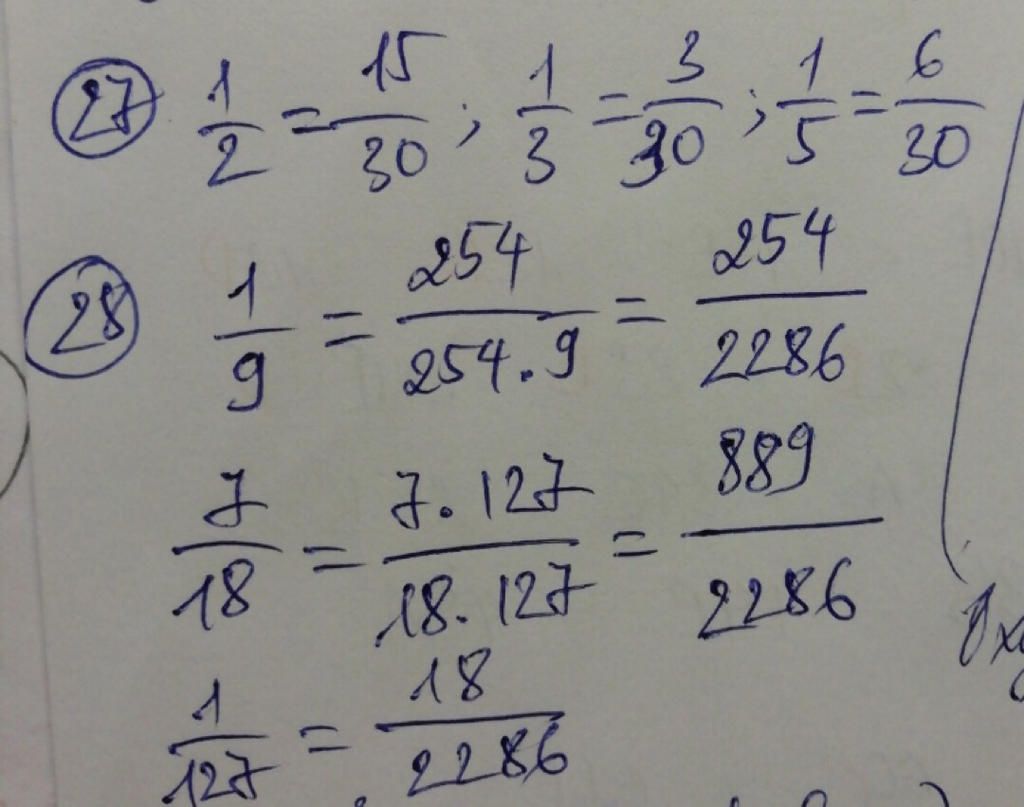 27 1/2 = 15/30 ; 1/3 = 3/30 ; 1/5 = 6/30
28 1/9 = 254/254.9 = 254/2286
7/18 = 7.127/18.127 = 889/2286
1/127 = 18/2286